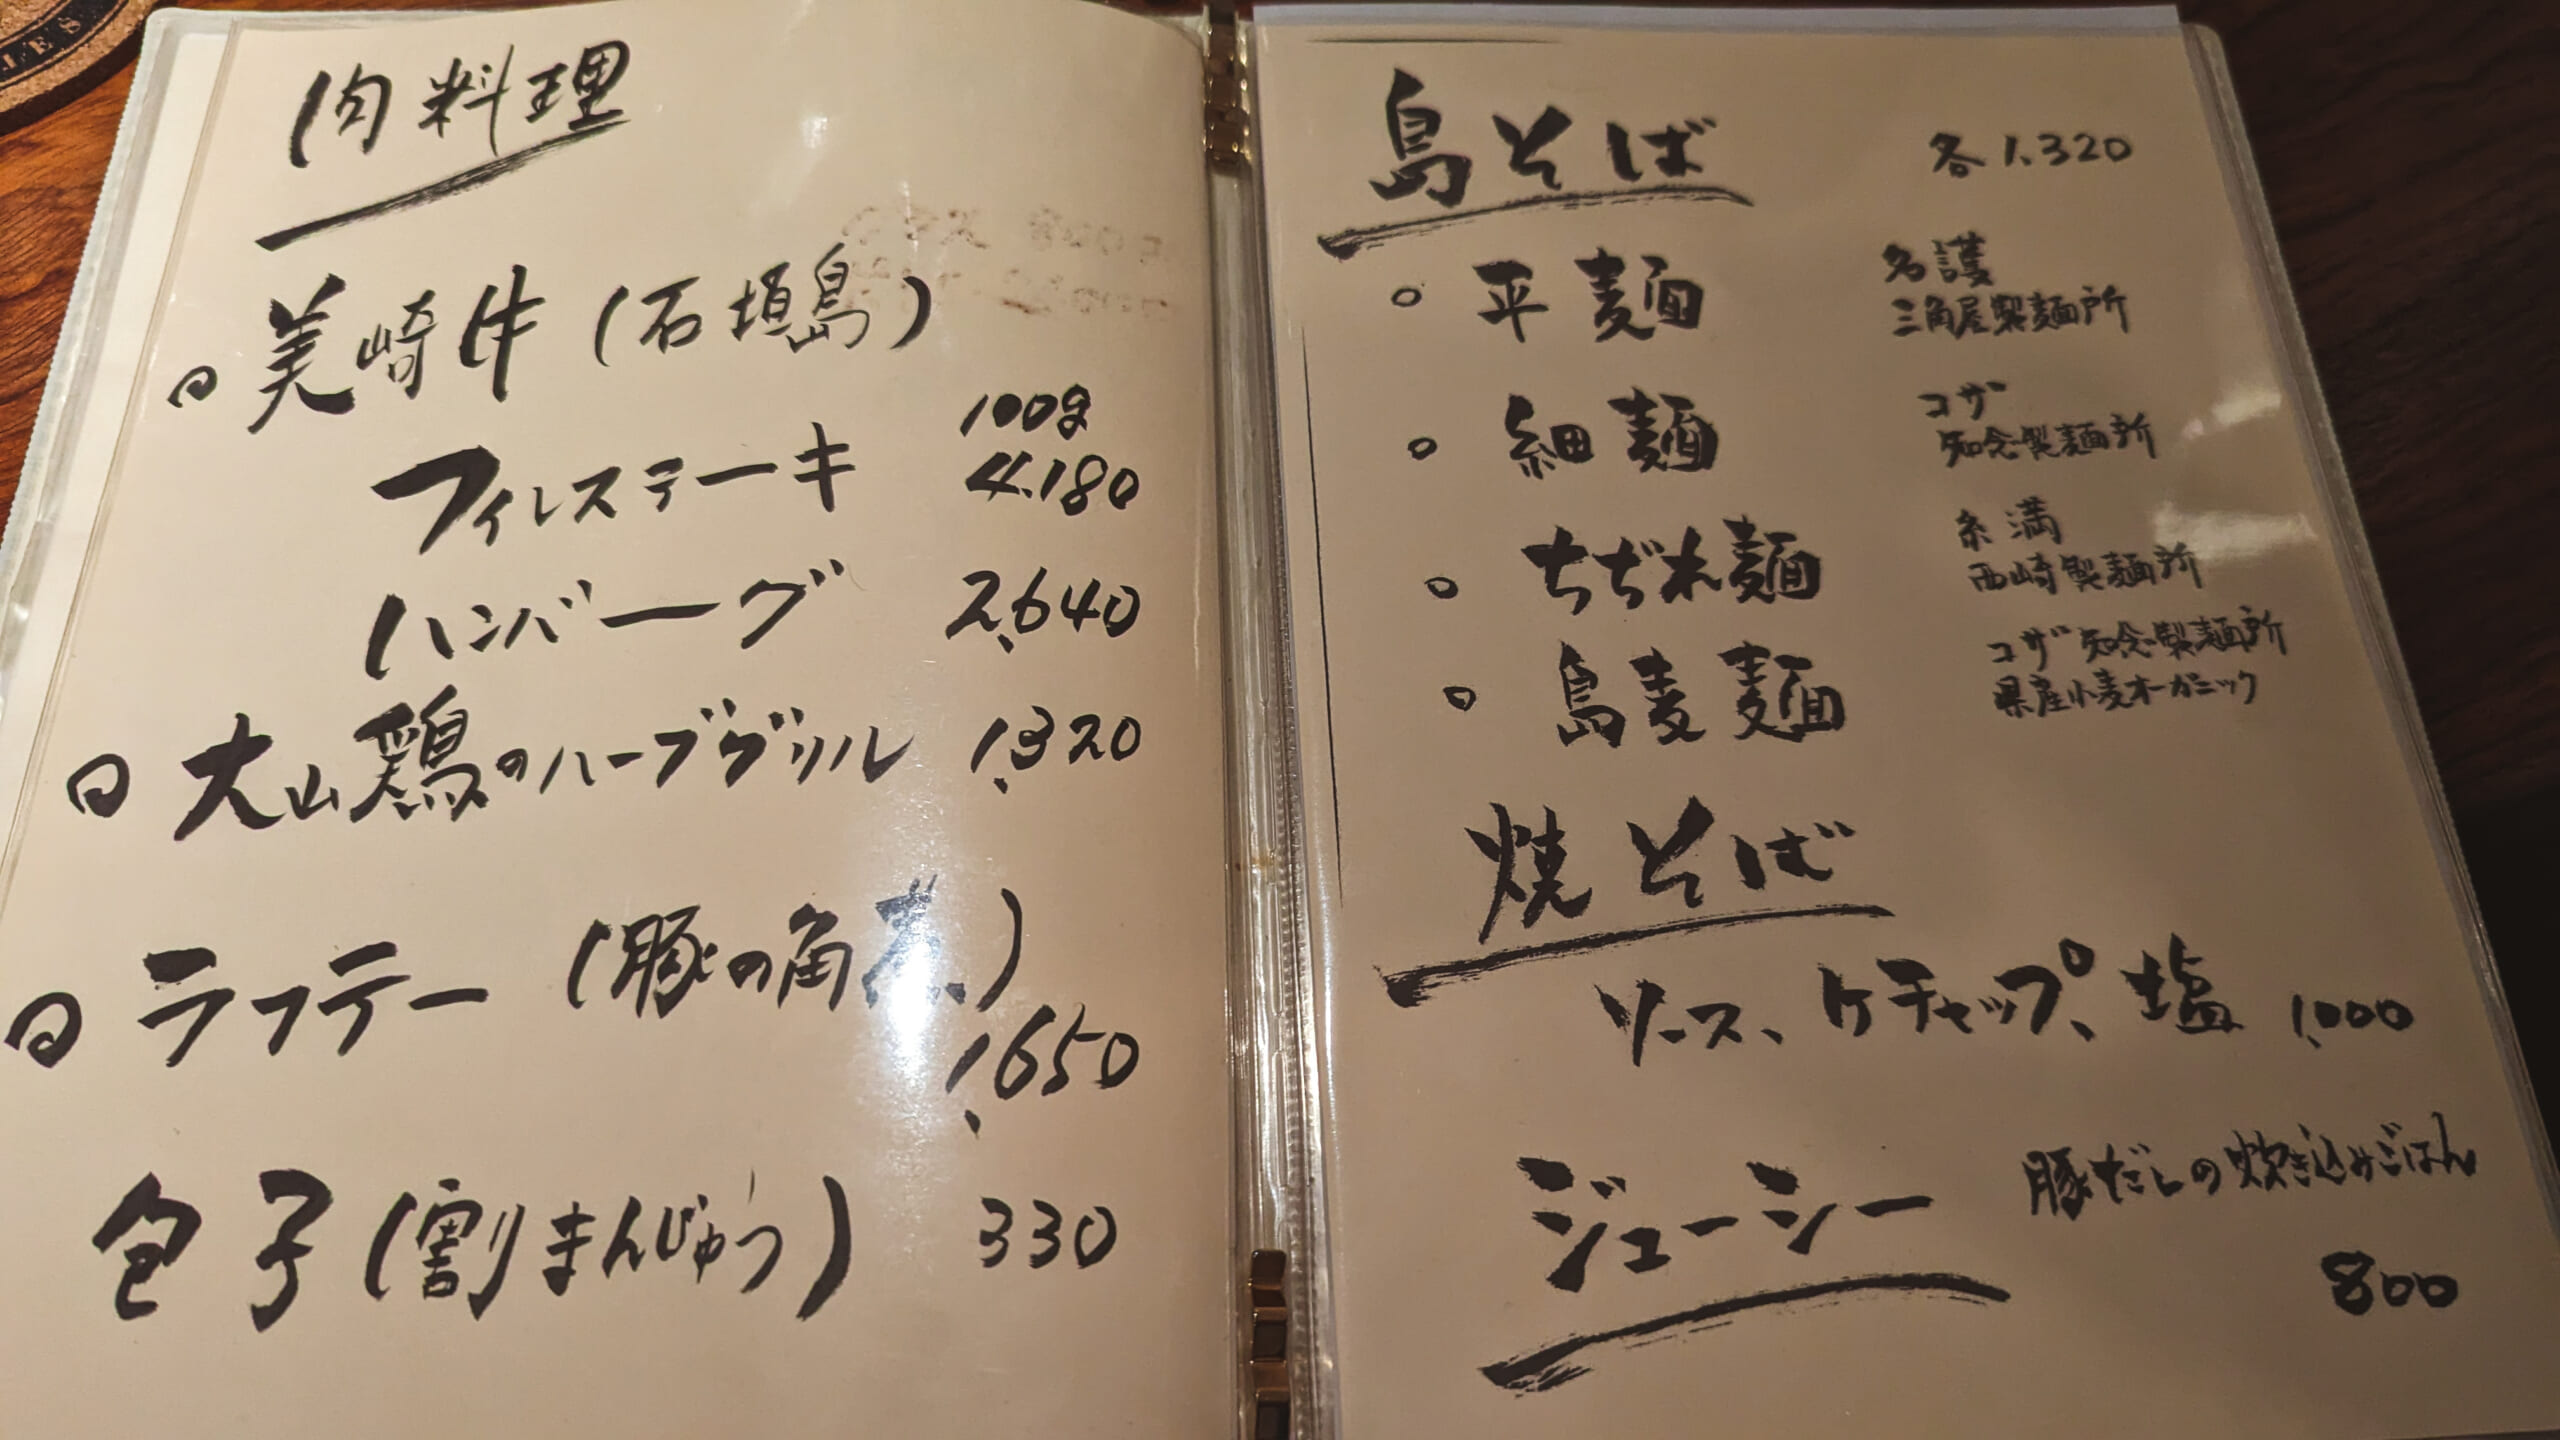 肉料理
美崎牛(石垣島)
フィレステーキ 100g 4.180
ハンバーグ 2,640
大山鶏のハーブグリル 1,320
ラフテー(豚の角煮)
1,650
包子(割まんじゅう) 330
島そば 各1.320
平麺 名護
三角屋製麺所
細麺 コザ
知念製麺所
ちぢれ麺 糸満
西崎製麺所
島麦麺 コザ 知念製麺所
県産小麦オーガニック
焼そば
ソース、ケチャップ、塩 1,000
ジューシー 豚だしの炊き込みごはん
800